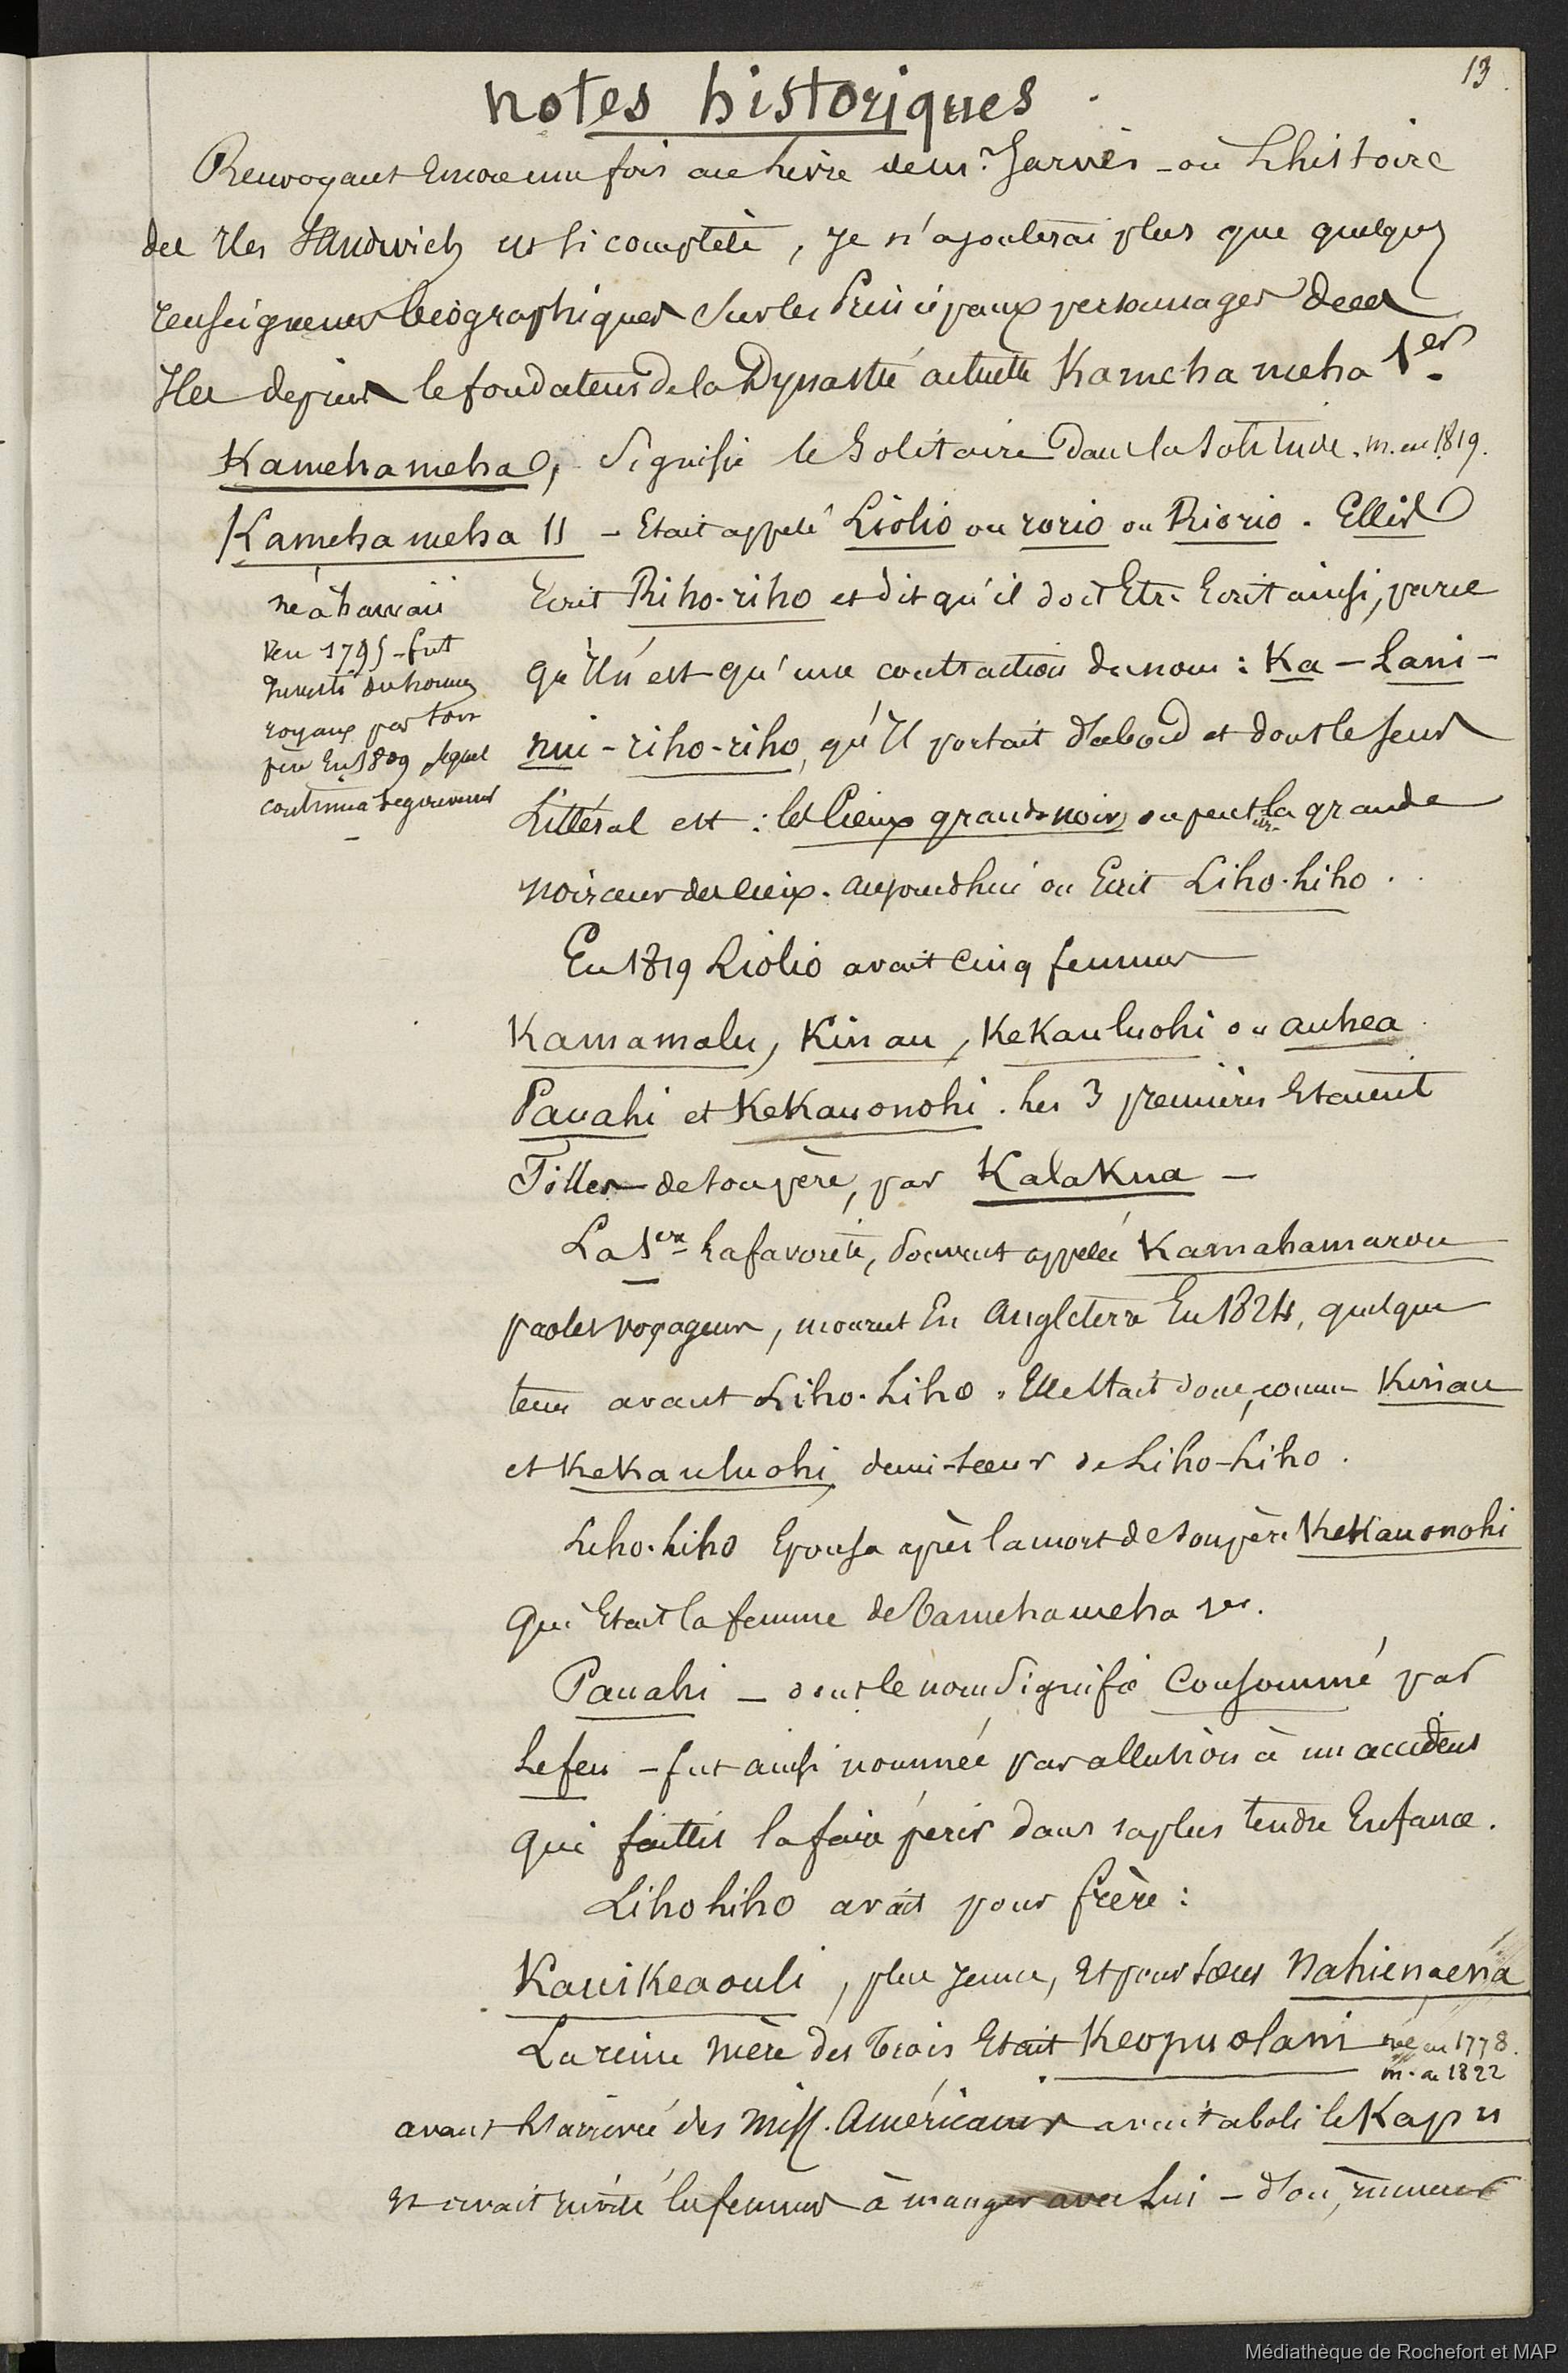 13
notes historiques.
Renvoyant Encore une fois au Livre de m. Jarvès - où L'histoire
des Iles Sandwich est si complète, je n'ajouterai plus que quelques
renseignemens biographiques sur les Principaux personnages de ces
Iles depuis le fondateur de la Dynastie actuelle Kamehameha 1er.
Kamehameha, signifie le Solitaire dans la solitude. m. en 1819.
Kamehameha II - Etait appelé Liolio ou rorio ou Riorio. Ellis
Ecrit Riho-riho et dit qu'il doit Etre Ecrit ainsi, parce
qu'Il n'est qu'une contraction du nom : Ka - Lani -
nui - riho-riho, qu'Il portait d'abord et dont le sens
Littéral est : les Cieux grands noirs, ou peut-être la grande
noirceur des cieux. aujourd'hui on Ecrit Liho-liho.
né à hawaii
en 1795 - fut
Investi des honneurs
royaux par son
père En 1809 lequel
continua de gouverner
En 1819 Liolio avait Cinq femmes
Kamamalu, Kinau, Kekauluohi ou auhea
Pauahi et Kekauonohi. Les 3 premières Etaient
Filles de son père, par Kalakua -
La 1ere La favorite, souvent appelée Kamahamarou
par les voyageurs, mourut En Angleterre En 1824, quelque
tems avant Liho-Liho. Elle Etait donc, comme Kinau
et Kekauluohi, demi-soeur de Liho-Liho.
Liho-liho Epousa après la mort de son père Kekauonohi
qui Etait la femme de Tamehameha 1er.
Pauahi - dont le nom signifie Consommé par
Le feu - fut ainsi nommée par allusion à un accident
qui faillit la faire périr dans sa plus tendre Enfance.
Liholiho avait pour frère :
Kauikeaouli, plus jeune, Et pour soeur Nahienaena
La reine mère des trois Etait Keopuolani née en 1778.
m. en 1822
avant L'arrivée des Miss. Américains avait aboli le Kapu
et avait invité les femmes à manger avec Lui - d'où,